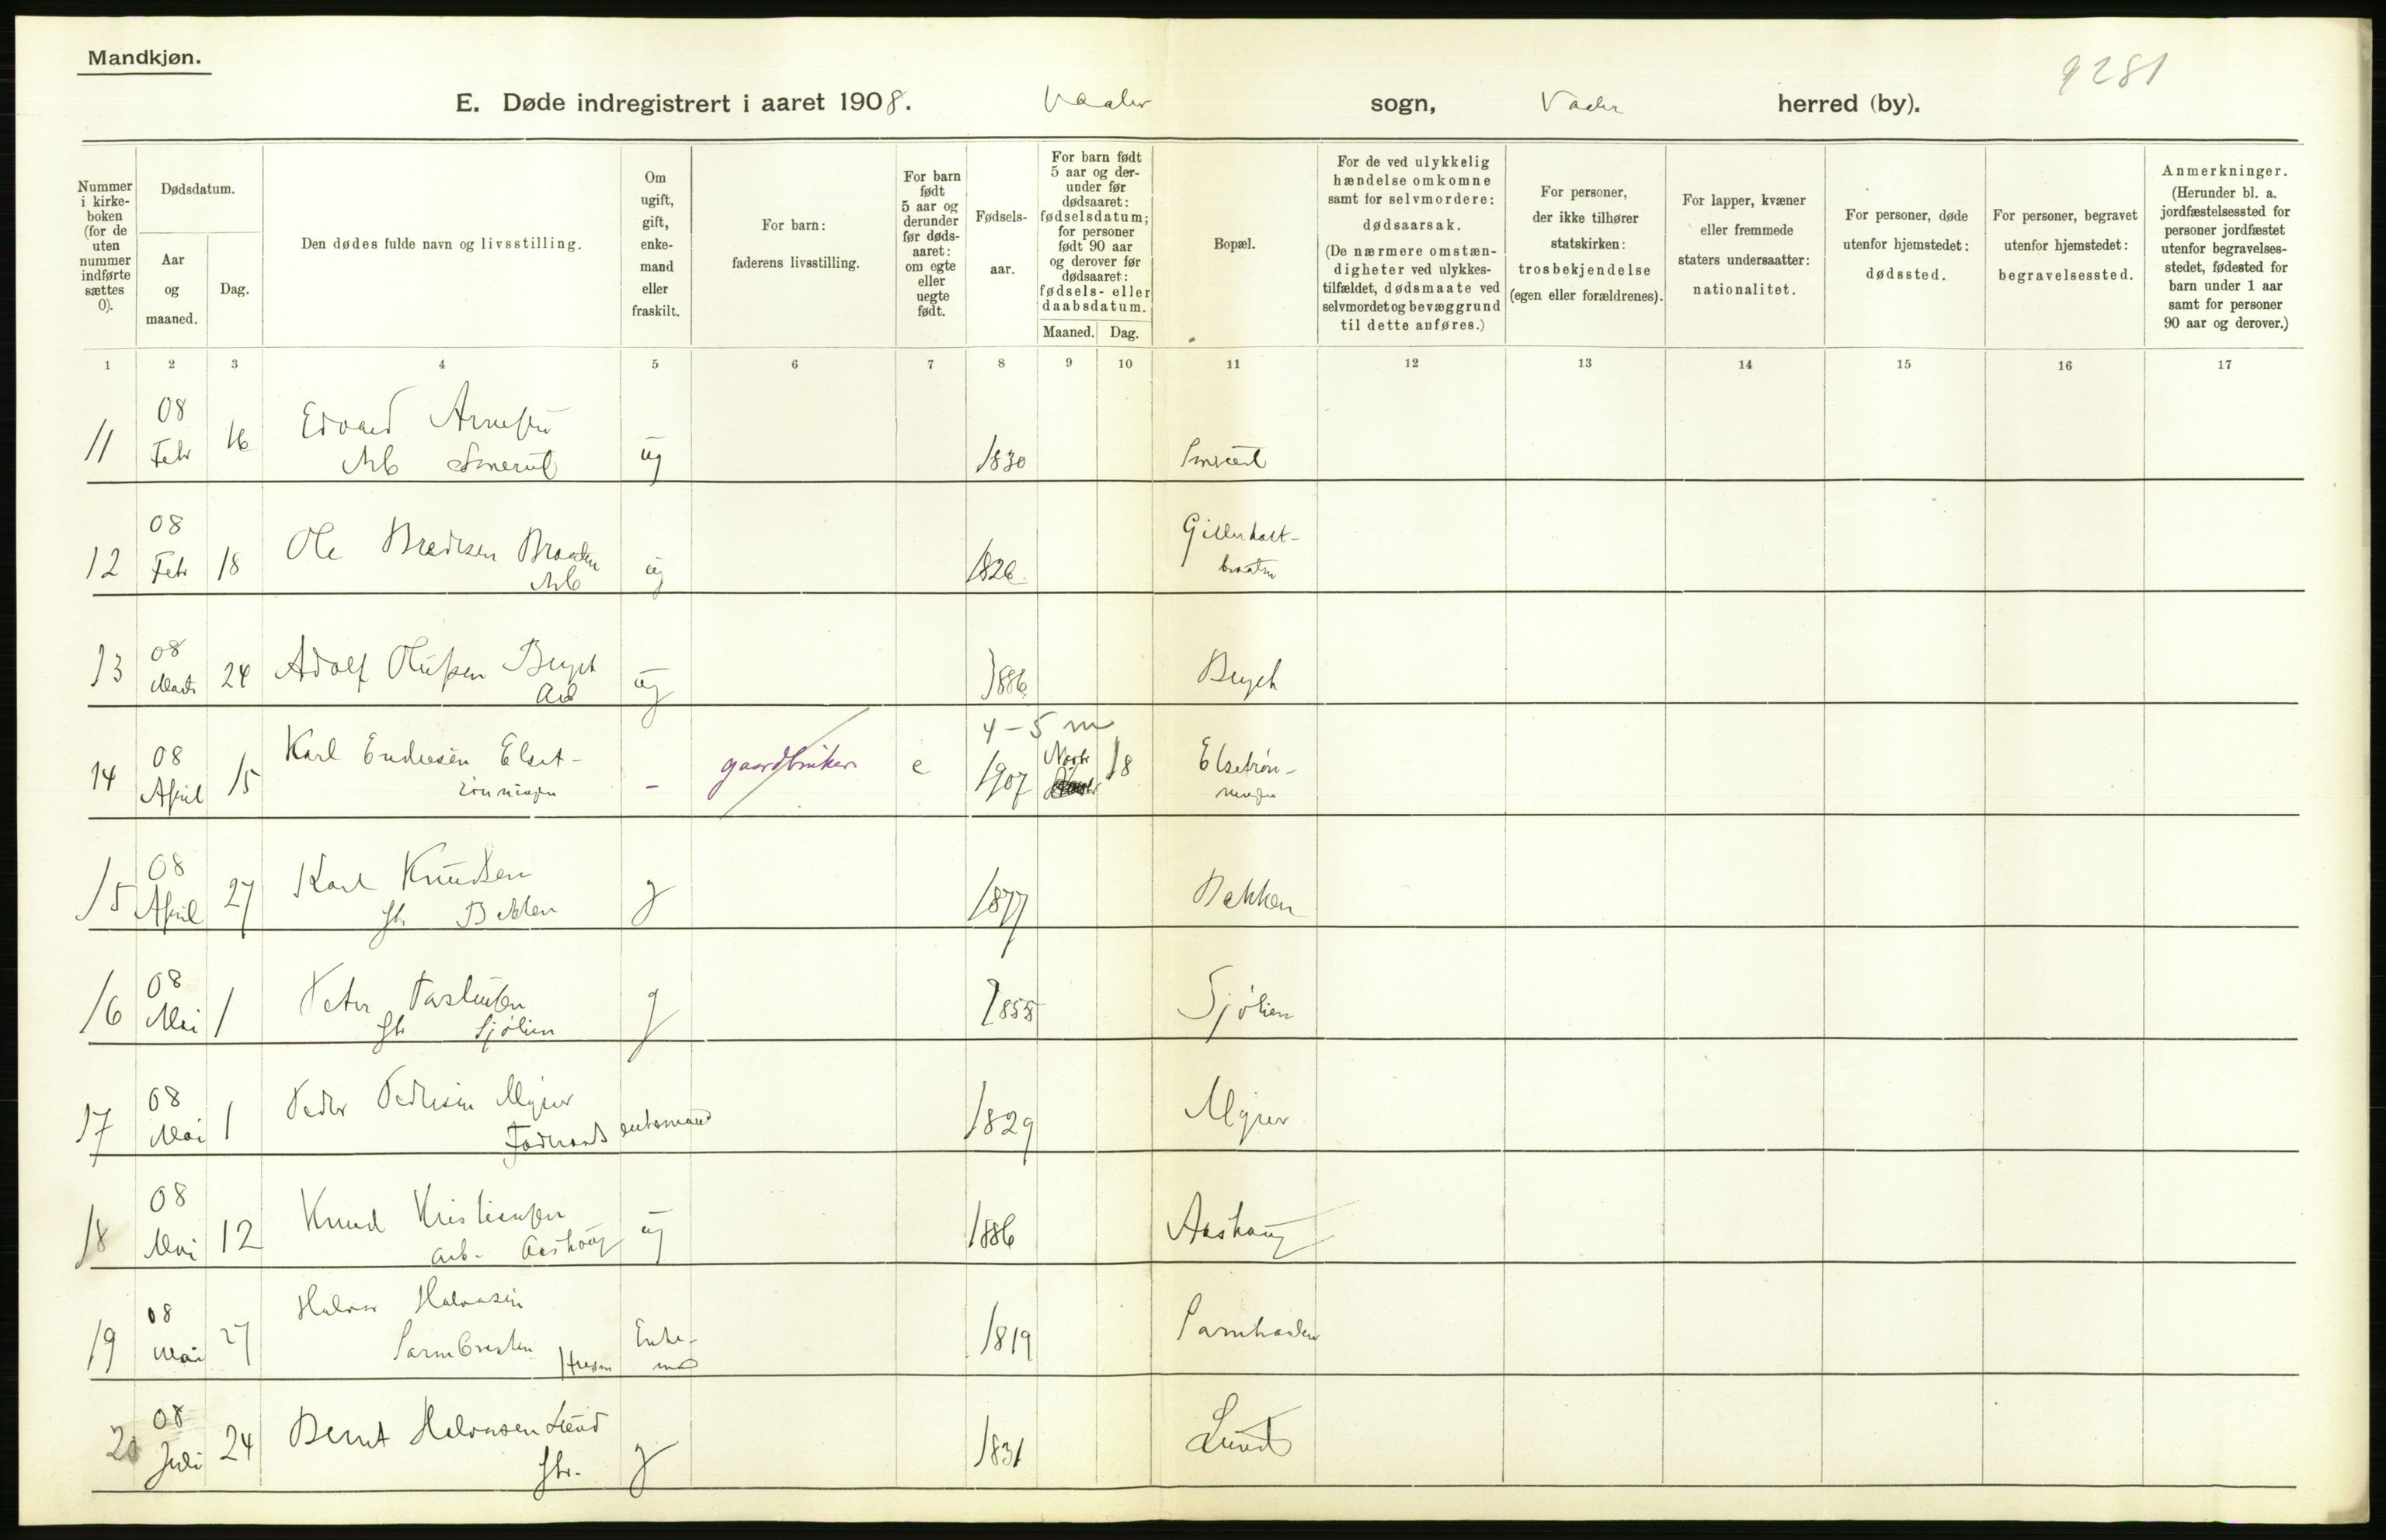 Mandkjøn.
9281
E. Døde indregistrert i aaret 1908. Vaaler sogn, Vaaler herred (by).
Nummer i kirkeboken (for de uten nummer indførte sættes 0).
Dødsdatum.
Aar og maaned.
Dag.
Den dødes fulde navn og livsstilling.
Om ugift, gift, enkemand eller fraskilt.
For barn: faderens livsstilling.
For barn født 5 aar og derunder før dødsaaret: om egte eller uegte født.
Fødselsaar.
For barn født 5 aar og derunder før dødsaaret: fødselsdatum; for personer født 90 aar og derover før dødsaaret: fødsels- eller daabsdatum.
Maaned. Dag.
Bopæl.
For de ved ulykkelig hændelse omkomne samt for selvmordere: dødsaarsak. (De nærmere omstændigheter ved ulykkestilfældet, dødsmaate ved selvmordet og bevæggrund til dette anføres.)
For personer, der ikke tilhører statskirken: trosbekjendelse (egen eller forældrenes).
For lapper, kvæner eller fremmede staters undersaatter: nationalitet.
For personer, døde utenfor hjemstedet: dødssted.
For personer, begravet utenfor hjemstedet: begravelsessted.
Anmerkninger. (Herunder bl. a. jordfæstelsessted for personer jordfæstet utenfor begravelsesstedet, fødested for barn under 1 aar samt for personer 90 aar og derover.)
1 2 3 4 5 6 7 8 9 10 11 12 13 14 15 16 17
11 08 Febr 16 Edvard Arnesen Arb Smerud ug 1830
12 08 Febr 18 Ole Bredesen Braaten Arb ug 1826 Gillerholtbraaten
13 08 Marts 24 Adolf Olufsen Arb ug 1886
4-5 m
14 08 April 15 Karl Endresen Elset- rønningen - gaardbruker e 1907 Novbr 18 Elsetrøn- ningen
15 08 April 27 Karl Knudsen Bakken g 1877 Bakken
16 08 Mai 1 Peter Sjølien g 1855 Sjølien
17 08 Mai 1 Peder Pedersen Myrer Føderaads enkemand 1829 Myrer
18 08 Mai 12 Knud Kristiansen arb. Aashaug ug 1886 Aashaug
19 08 Mai 27 Halvor Halvorsen Husm Enke- md 1819
20 08 Juli 24 Bernt Halvorsen Lund g 1831 Lund